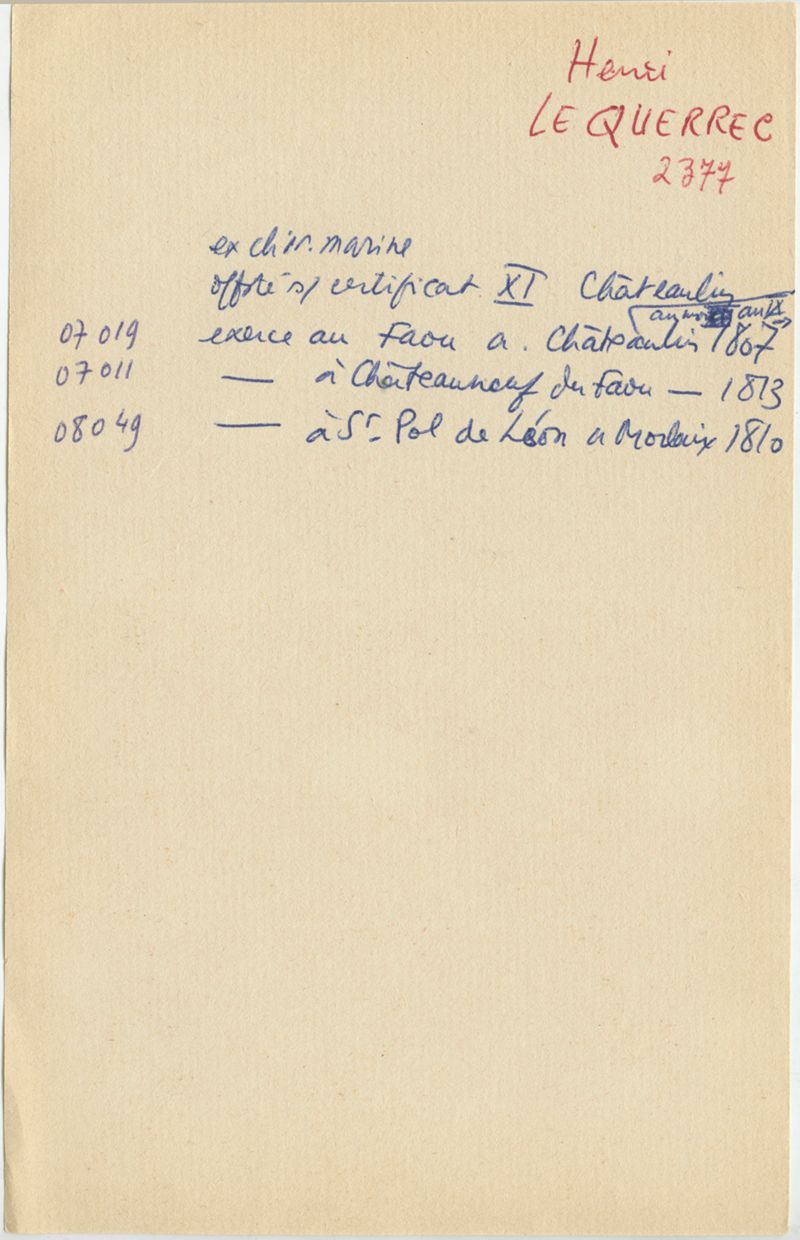 Henri
LE QUERREC
2377
ex chir. marine
offsté s/ certificat XI Châteaulin
au moins an IX
07 019 exerce au Faou a. Châteaulin 1807
07 011 — à Châteauneuf du Faou — 1813
08 049 — à St Pol de Léon a Morlaix 1810